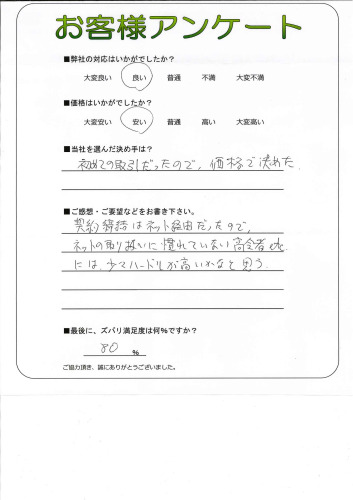 お客様アンケート
■弊社の対応はいかがでしたか?
大変良い 良い 普通 不満 大変不満
■価格はいかがでしたか?
大変安い 安い 普通 高い 大変高い
■当社を選んだ決め手は?
初めての取引だったので、価格で決めた
■ご感想・ご要望などをお書き下さい。
契約締結はネット経由だったので、
ネットの取り扱いに慣れていない高令者etc
には、少々ハードルが高いかなと思う
■最後に、ズバリ満足度は何%ですか?
80 %
ご協力頂き、誠にありがとうございました。